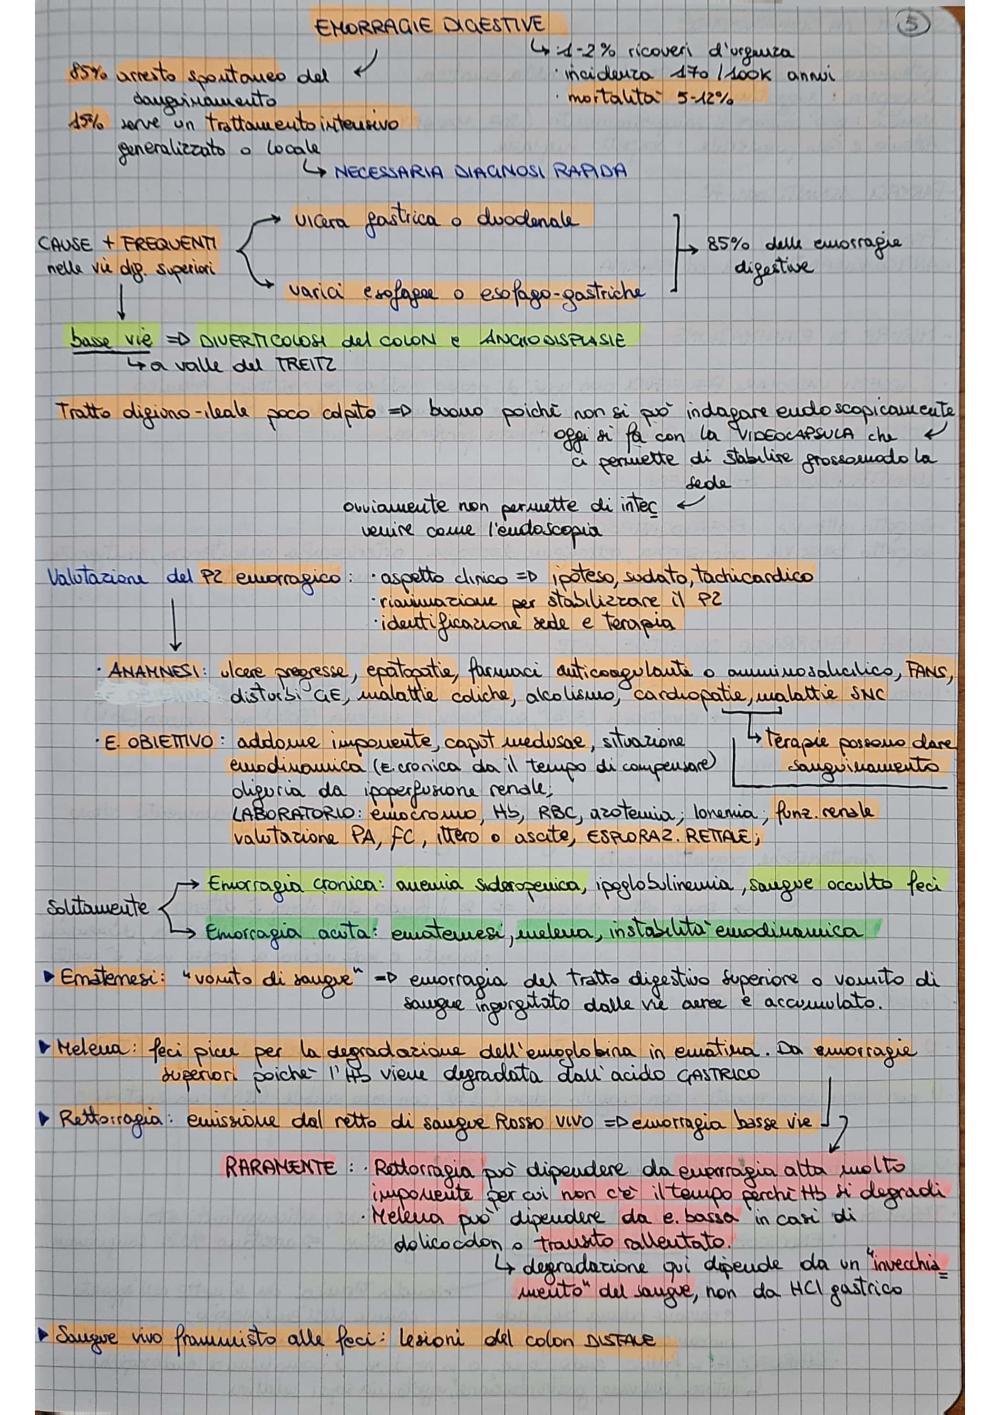 EMORRAGIE DIGESTIVE
5
↳ · 1-2% ricoveri d'urgenza
· incidenza 170/100K annui
· mortalità 5-12%
85% arresto spontaneo del
sanguinamento
15% serve un trattamento intensivo
generalizzato o locale
↳ NECESSARIA DIAGNOSI RAPIDA
CAUSE + FREQUENTI
nelle vie dig. superiori
ulcera gastrica o duodenale
varici esofagee o esofago-gastriche
→ 85% delle emorragie
digestive
basse vie => DIVERTICOLOSI del COLON e ANGIODISPLASIE
↳ a valle del TREITZ
Tratto digiuno-ileale poco colpito => buono poichè non si può indagare endoscopicamente
oggi si fa con la VIDEOCAPSULA che
ci permette di stabilire grossomodo la
sede
ovviamente non permette di inter
venire come l'endoscopia
Valutazione del PZ emorragico: · aspetto clinico => ipoteso, sudato, tachicardico
· rianimazione per stabilizzare il PZ
· identificazione sede e terapia
· ANAMNESI: ulcere pregresse, epatopatie, farmaci anticoagulante o amminosalicilico, FANS,
disturbi GE, malattie coliche, alcolismo, cardiopatie, malattie SNC
↳ terapie possono dare
sanguinamento
· E. OBIETTIVO: addome imponente, caput medusae, situazione
emodinamica (E. cronica da il tempo di compensare)
oliguria da ipoperfusione renale;
LABORATORIO: emocromo, Hb, RBC, azotemia, ionemia, funz. renale
valutazione PA, FC, ittero o ascite, ESPLORAZ. RETTALE;
Solitamente
→ Emorragia cronica: anemia sideropenica, ipoglobulinemia, sangue occulto feci
↳ Emorragia acuta: ematemesi, melena, instabilità emodinamica
▶ Ematemesi: "vomito di sangue" => emorragia del tratto digestivo superiore o vomito di
sangue ingurgitato dalle vie aeree e accumulato.
▶ Melena: feci picee per la degradazione dell'emoglobina in ematina. Da emorragie
superiori poichè l'Hb viene degradata dall'acido GASTRICO
▶ Rettorragia: emissione dal retto di sangue ROSSO VIVO => emorragia basse vie
RARAMENTE: · Rettorragia può dipendere da emorragia alta molto
imponente per cui non c'è il tempo perchè Hb si degradi
· Melena può dipendere da e. bassa in casi di
dolicocolon o transito rallentato.
↳ degradazione qui dipende da un "invecchia=
mento" del sangue, non da HCl gastrico
▶ Sangue vivo frammisto alle feci: lesioni del colon DISTALE